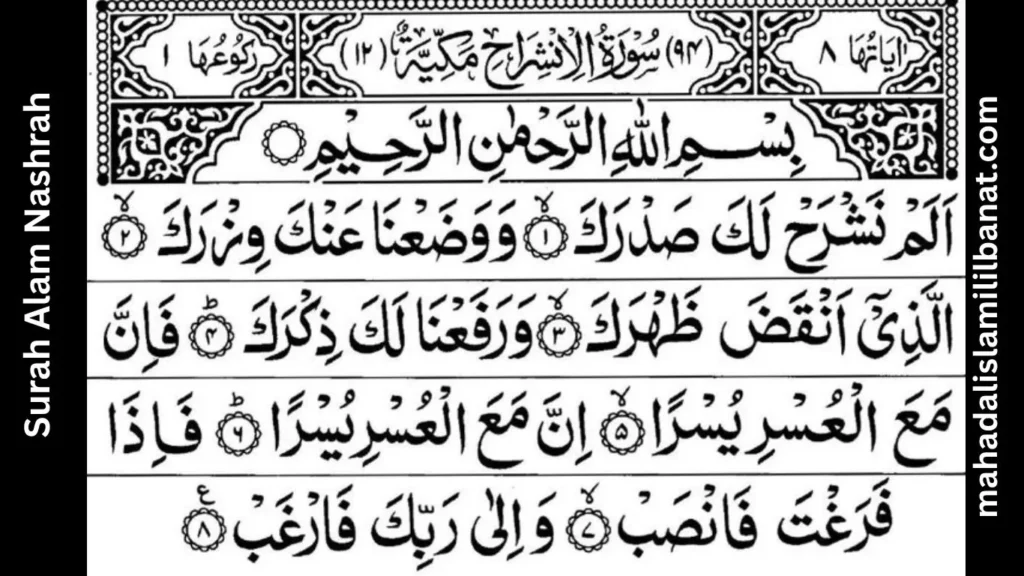 Surah Alam Nashrah
اٰيَاتُهَا ٨
(٩٤) سُوْرَةُ الْاِنْشِرَاحِ مَكِّيَّةٌ (١٢)
رُكُوْعُهَا ١
بِسْمِ اللّٰهِ الرَّحْمٰنِ الرَّحِيْمِ
اَلَمْ نَشْرَحْ لَكَ صَدْرَكَ ۙ﴿١﴾ وَوَضَعْنَا عَنْكَ وِزْرَكَ ۙ﴿٢﴾
الَّذِيْۤ اَنْقَضَ ظَهْرَكَ ۙ﴿٣﴾ وَرَفَعْنَا لَكَ ذِكْرَكَ ؕ﴿۴﴾ فَاِنَّ
مَعَ الْعُسْرِ يُسْرًا ۙ﴿۵﴾ اِنَّ مَعَ الْعُسْرِ يُسْرًا ؕ﴿۶﴾ فَاِذَا
فَرَغْتَ فَانْصَبْ ۙ﴿٧﴾ وَاِلٰى رَبِّكَ فَارْغَبْ ﴿٨﴾ ع
mahadalislamililbanat.com